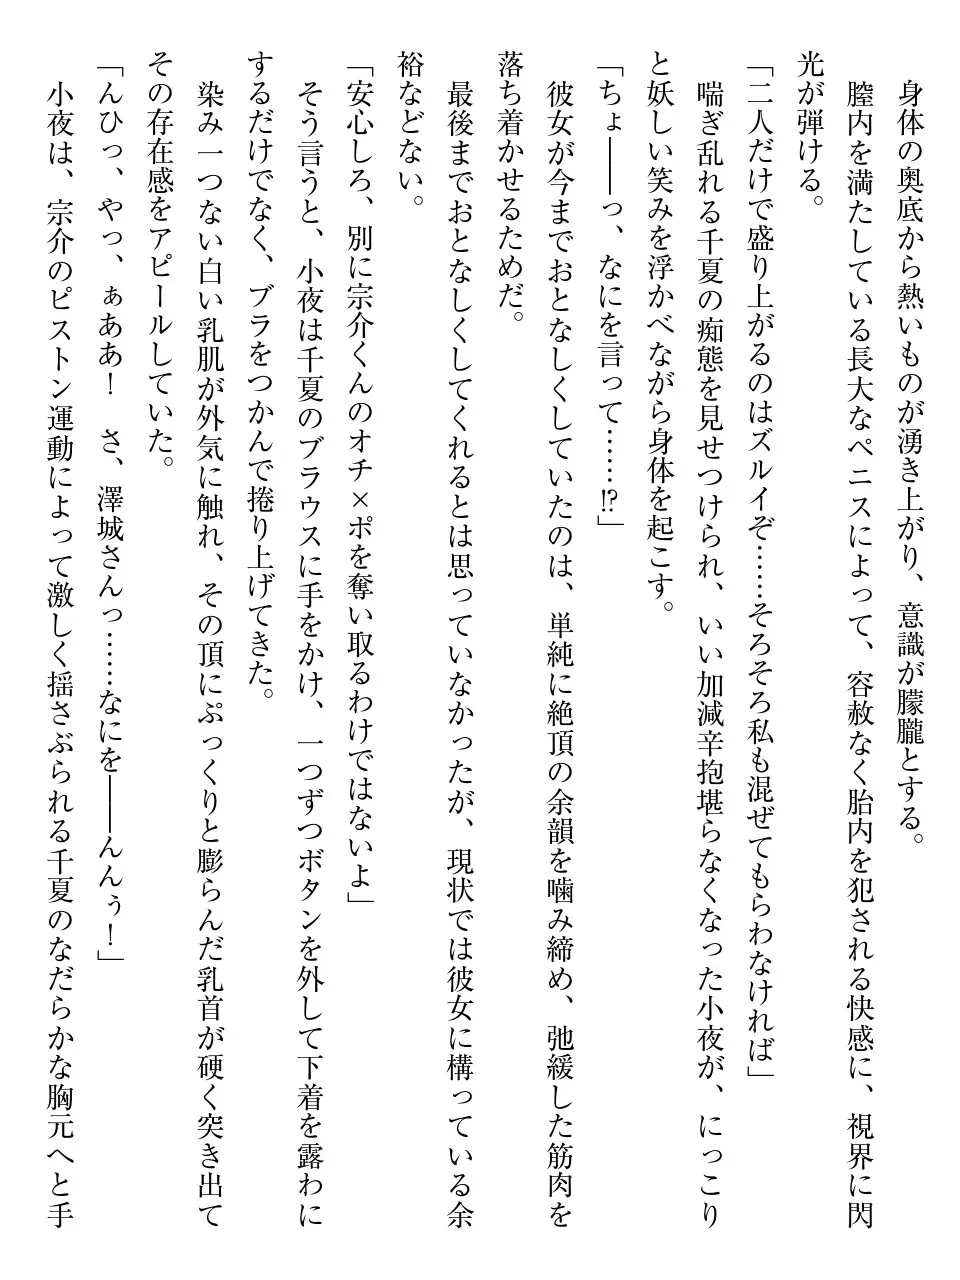 身体の奥底から熱いものが湧き上がり、意識が朦朧とする。
膣内を満たしている長大なペニスによって、容赦なく胎内を犯される快感に、視界に閃
光が弾ける。
「二人だけで盛り上がるのはズルイぞ……そろそろ私も混ぜてもらわなければ」
喘ぎ乱れる千夏の痴態を見せつけられ、いい加減辛抱堪らなくなった小夜が、にっこり
と妖しい笑みを浮かべながら身体を起こす。
「ちょ――っ、なにを言って……!?」
彼女が今までおとなしくしていたのは、単純に絶頂の余韻を噛み締め、弛緩した筋肉を
落ち着かせるためだ。
最後までおとなしくしてくれるとは思っていなかったが、現状では彼女に構っている余
裕などない。
「安心しろ、別に宗介くんのオチ×ポを奪い取るわけではないよ」
そう言うと、小夜は千夏のブラウスに手をかけ、一つずつボタンを外して下着を露わに
するだけでなく、ブラをつかんで捲り上げてきた。
染み一つない白い乳肌が外気に触れ、その頂にぷっくりと膨らんだ乳首が硬く突き出て
その存在感をアピールしていた。
「んひっ、やっ、ぁああ！　さ、澤城さんっ……なにを――んんぅ！」
小夜は、宗介のピストン運動によって激しく揺さぶられる千夏のなだらかな胸元へと手